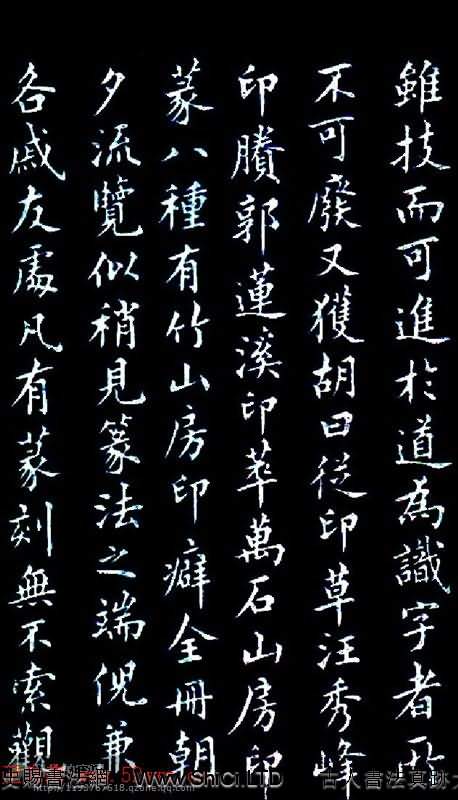 雖技而可進於道為識字者所
不可廢又獲胡曰從印草汪秀峰
印賸郭蓮溪印萃萬石山房印
篆八種有竹山房印癖全冊朝
夕流覽似稍見篆法之端倪兼
各戚友處凡有篆刻無不索觀
史賜書法網
www.shici.LTD
古人書法真跡大